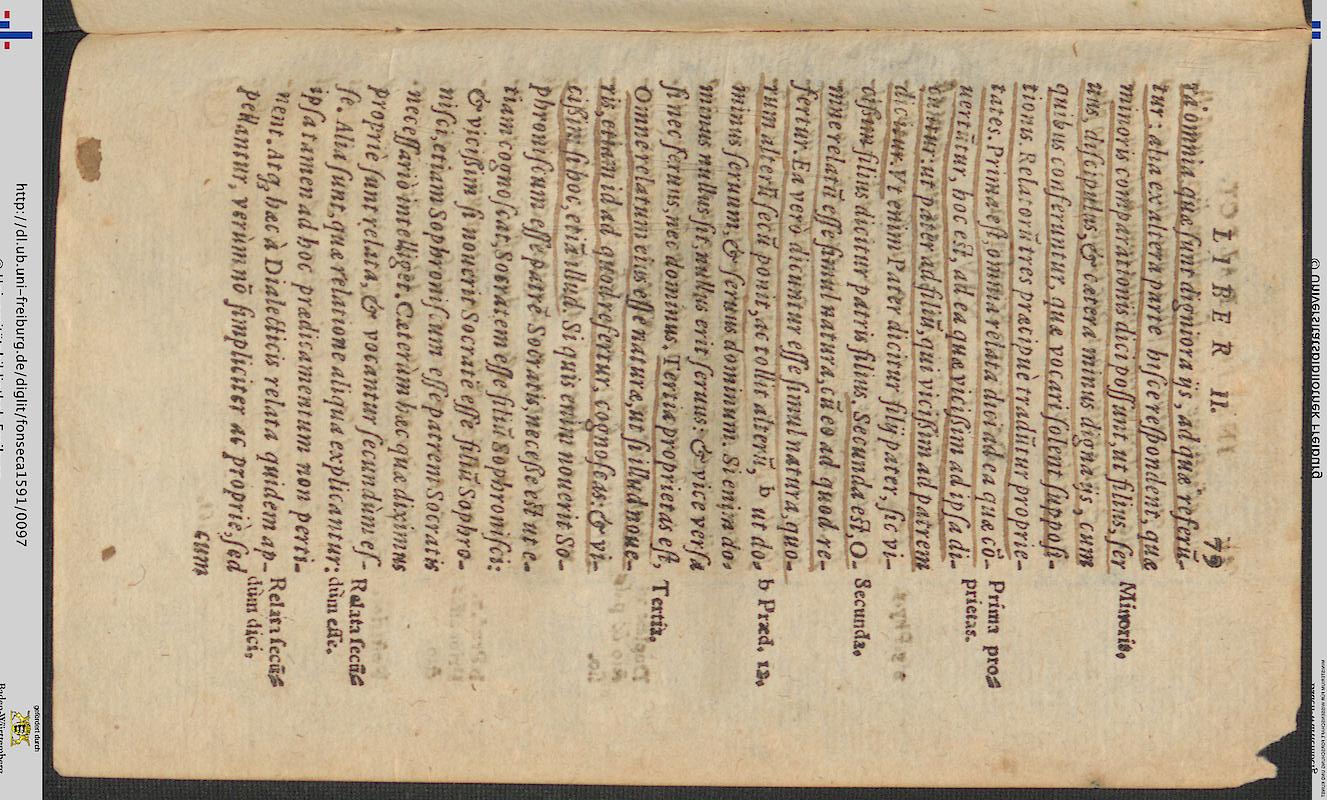 LIBER II. 79
ra omnia quæ sunt digniora ijs, ad quæ referū-
tur: alia ex altera parte hisce respondent, quæ
minoris comparationis dici possunt, ut filius, ser
uus, discipulus, & cætera minus digna ijs, cum
quibus conferuntur, quæ vocari solent supposi-
tionis. Relatorū tres præcipuè tradūtur proprie-
tates. Prima est, omnia relata dici ad ea quæ cō-
uertūtur, hoc est, ad ea quæ vicissim ad ipsa di-
cuntur: ut pater ad filiū, qui vicissim ad patrem
dicitur. Vt enim Pater dicitur filij pater, sic vi-
cissim filius dicitur patris filius. Secunda est, O-
mne relatū esse simul natura, cū eo ad quod re-
fertur. Ea verò dicuntur esse simul natura, quo-
rum alterū secū ponit, ac tollit alterū, b ut do-
minus seruum, & seruus dominum. Si enim do-
minus nullus sit, nullus erit seruus & vice versa
si nec seruus, nec dominus. Tertia proprietas est,
Omne relatum eius esse naturæ, ut si illud noue-
ris, etiam id ad quod refertur, cognoscas: & vi-
cissim si hoc, etiā illud. Si quis enim nouerit So-
phroniscum esse patrē Socratis, necesse est ut e-
tiam cognoscat, Socratem esse filiū Sophronisci:
& vicissim si nouerit Socratē esse filiū Sophro-
nisci, etiam Sophroniscum esse patrem Socratis
necessariò intelliget. Cæterùm hæc quæ diximus
propriè sunt relata, & vocantur secundùm es-
se. Alia sunt, quæ relatione aliqua explicantur:
ipsa tamen ad hoc prædicamentum non perti-
nent. Atq; hæc à Dialecticis relata quidem ap-
pellantur, verùm nō simpliciter ac propriè, sed
cum
Minoris.
Prima pro=
prietas.
Secunda.
b Præd. 12.
Tertia.
Relata secū=
dùm esse.
Relata secū=
dùm dici.
http://dl.ub.uni-freiburg.de/diglit/fonseca1591/0097
gefördert durch